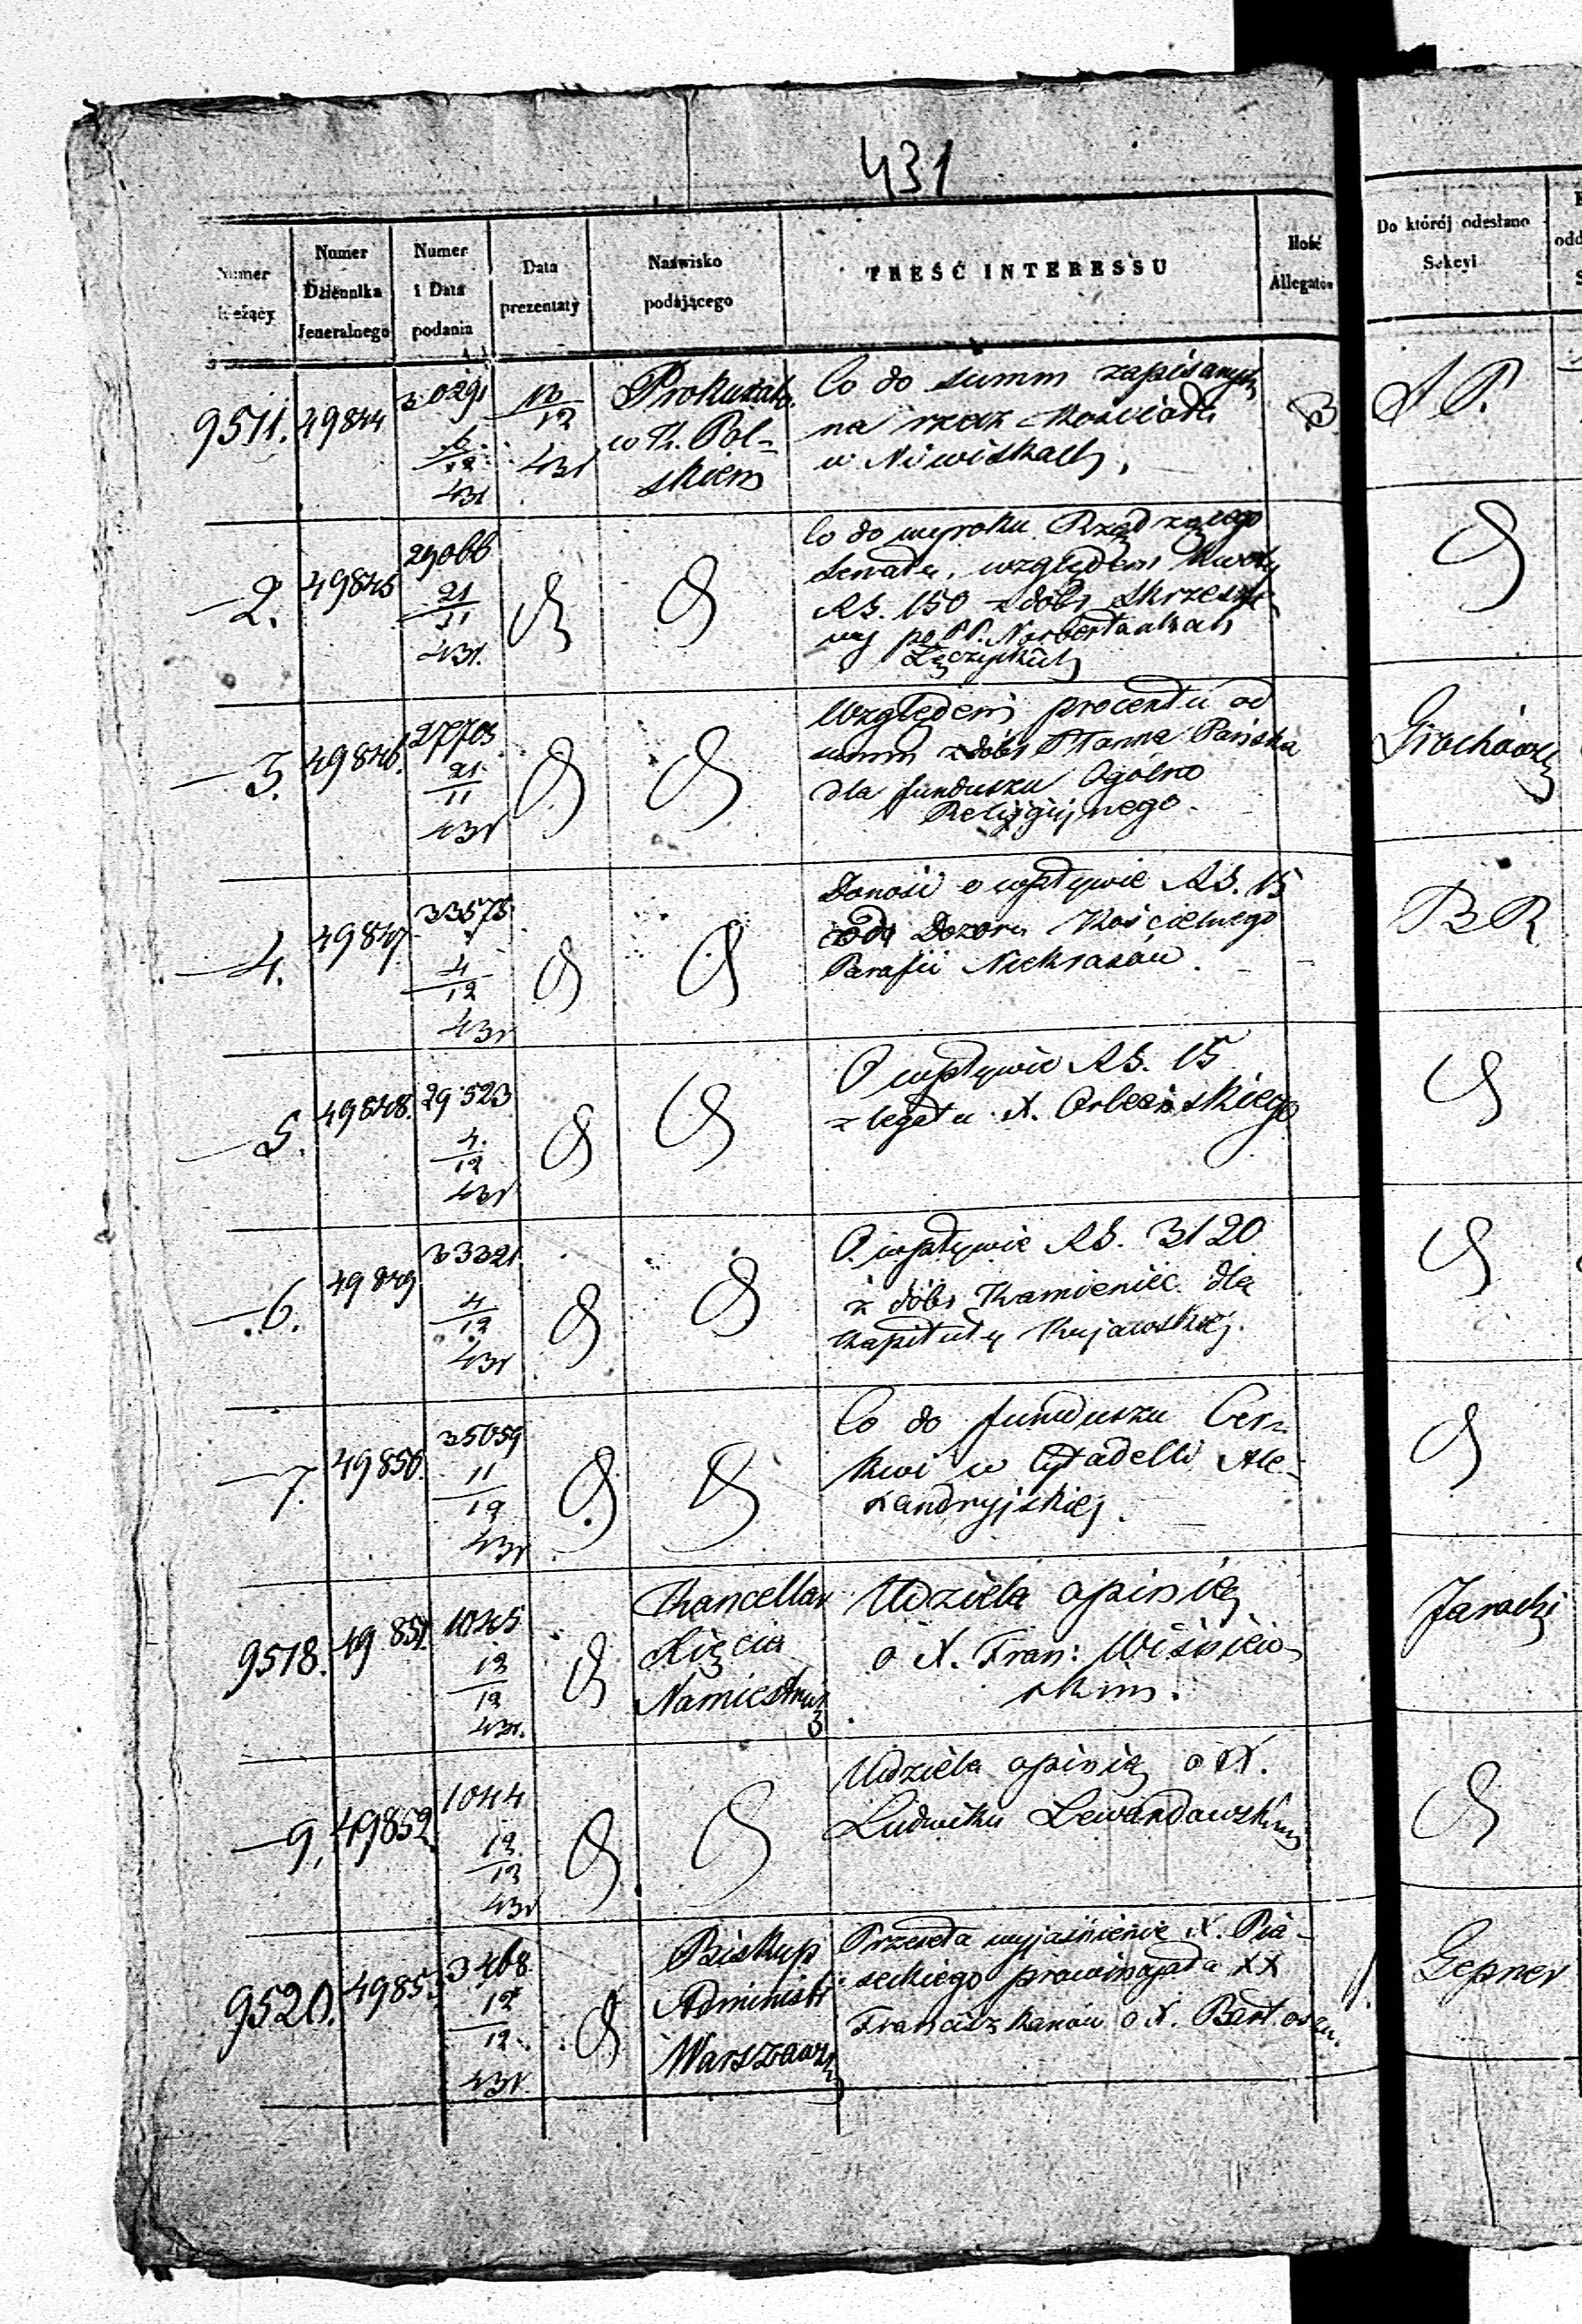 431
Numer bieżący
Numer Dziennika Jeneralnego
Numer i Data podania
Data prezentaty
Nazwisko podającego
TREŚĆ INTERESSU
Ilość Allegatów
Do którój odesłano Sekcyi
9511. 49844 30291 6/12 431 13/12 431
Prokurato.
w K. Pol-
skiem
Co do summ zapisanych
na rzecz Kościoła
w Niwiskach.
3
—2. 49845 29066 21/11 431.
Co do wyroku Rządzącego
Senatu, względem kwoty
RS. 150 z dóbr Skrzeszе
wy po PP. Norbertankach
Łęczyckich
—3. 49846. 27703 21/11 431
Względem procentu od
summ z dóbr Panna Pańska
dla funduszu Ogólno
Religijnego.
Grochowski
—4. 49847. 33575 4/12 431
Donosi o wpływie RS. 15
od Dozoru Kościelnego
Parafii Niekrasów.
BR
—5. 49848. 29523 4/12 431
O wpływie RS. 15
z legatu X. Orłowskiego
—6. 49849 33321. 4/12 431
O wpływie RS. 3120
z dóbr Kamieniec dla
Kapituły Kujawskiej.
—7. 49850. 35059 11/12 431
Co do funduszu Cer-
kwi w Cytadelli Ale-
xandryjskiej.
9518. 49851. 1045 12/12 431.
Kancellar
Xięcia
Namiestni
3
Udziela opinią
o X. Fran: Wiśnieо-
skim.
Jaracki
—9. 49852. 1044 12/12 431
Udziela opinią o X.
Ludwiku Lewandowskim
9520. 49853 3468 12/12 431
Biskup
Administr
Warszawski
Przeseła wyjaśnienie X. Pia-
seckiego prowincyała XX
Franciszkanów o X. Bartoszu.
1.
Gepner